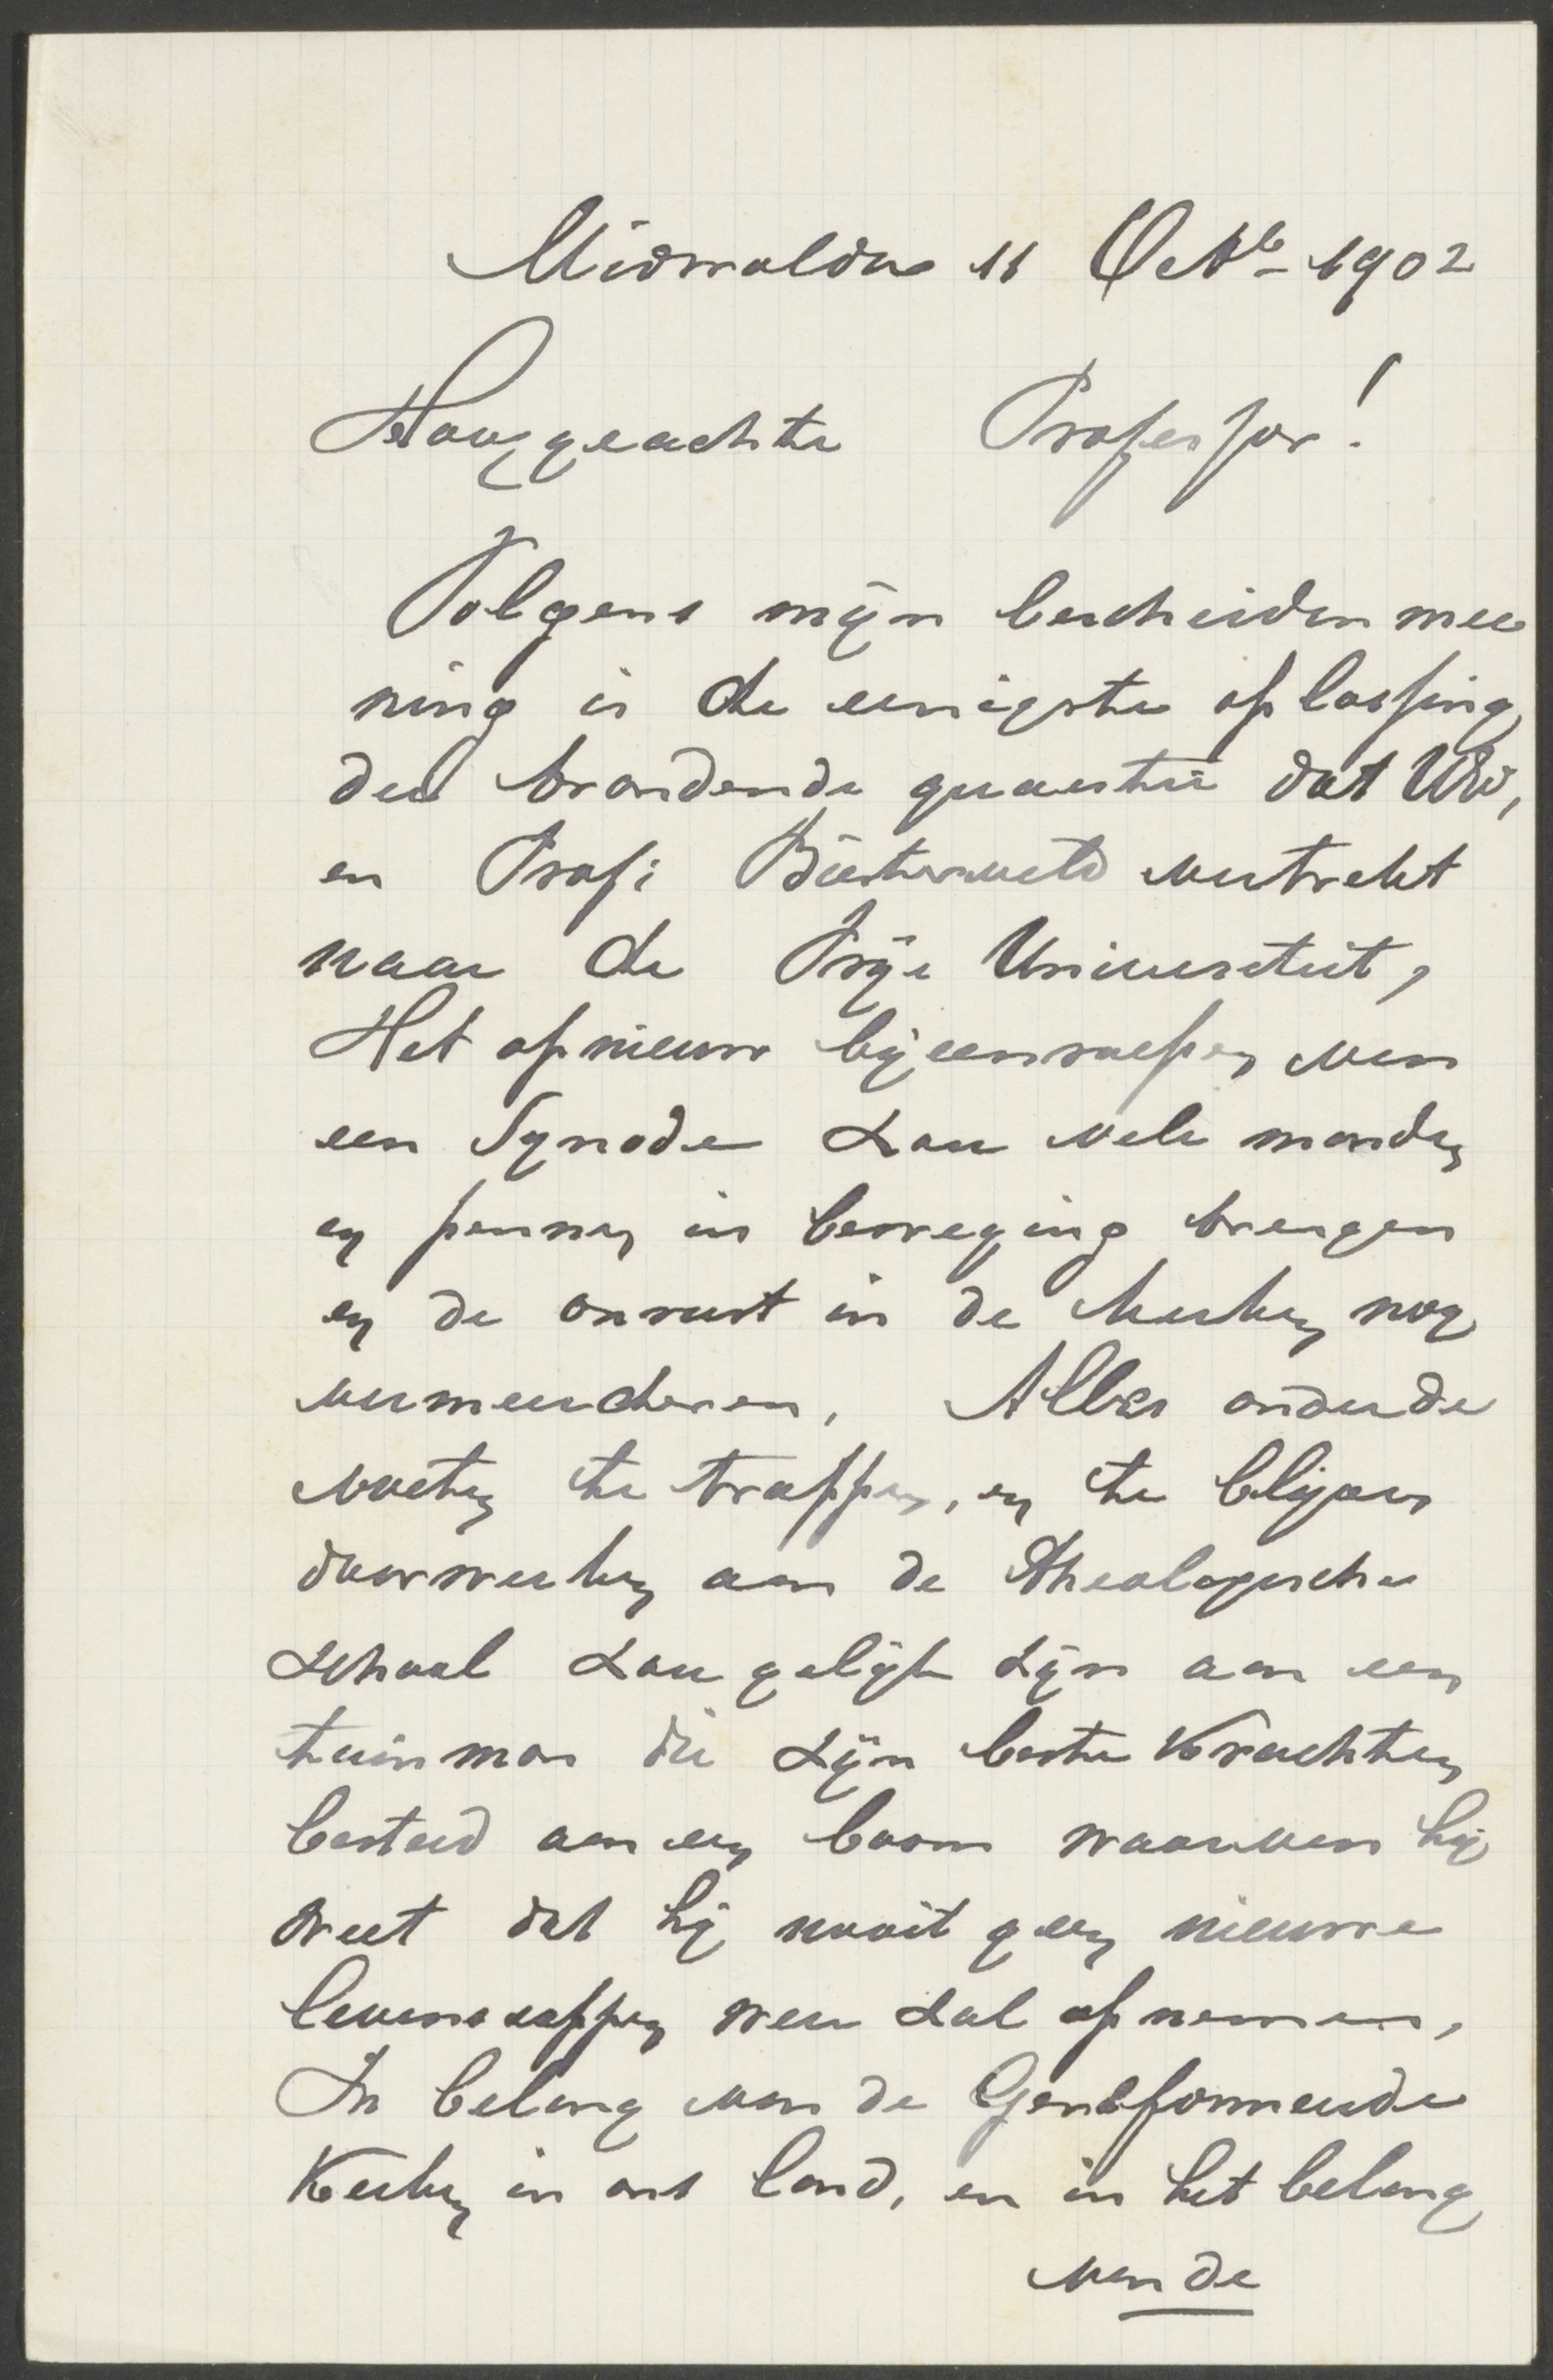 Midwolda 11 Octb- 1902
Hooggeachte Professor!
Volgens mijn bescheiden mee
ning is de eenigste oplossing
der brandende quaestie dat UW,
en Prof: Biesterveld vertrekt
naar de Vrije Universiteit,
Het opnieuw bijeenroepen van
een Synode zou vele monden
en pennen in beweging brengen
en de onrust in de kerken nog
vermeerderen, Alles onder de
voeten te trappen, en te blijven
doorwerken aan de Theologische
school zou gelijk zijn aan een
tuinman die zijn beste krachten
besteed aan een boom waarvan hij
weet dat hij nooit geen nieuwe
levenssappen weer zal opnemen,
In belang van de Gereformeerde
Kerken in ons land, en in het belang
van de